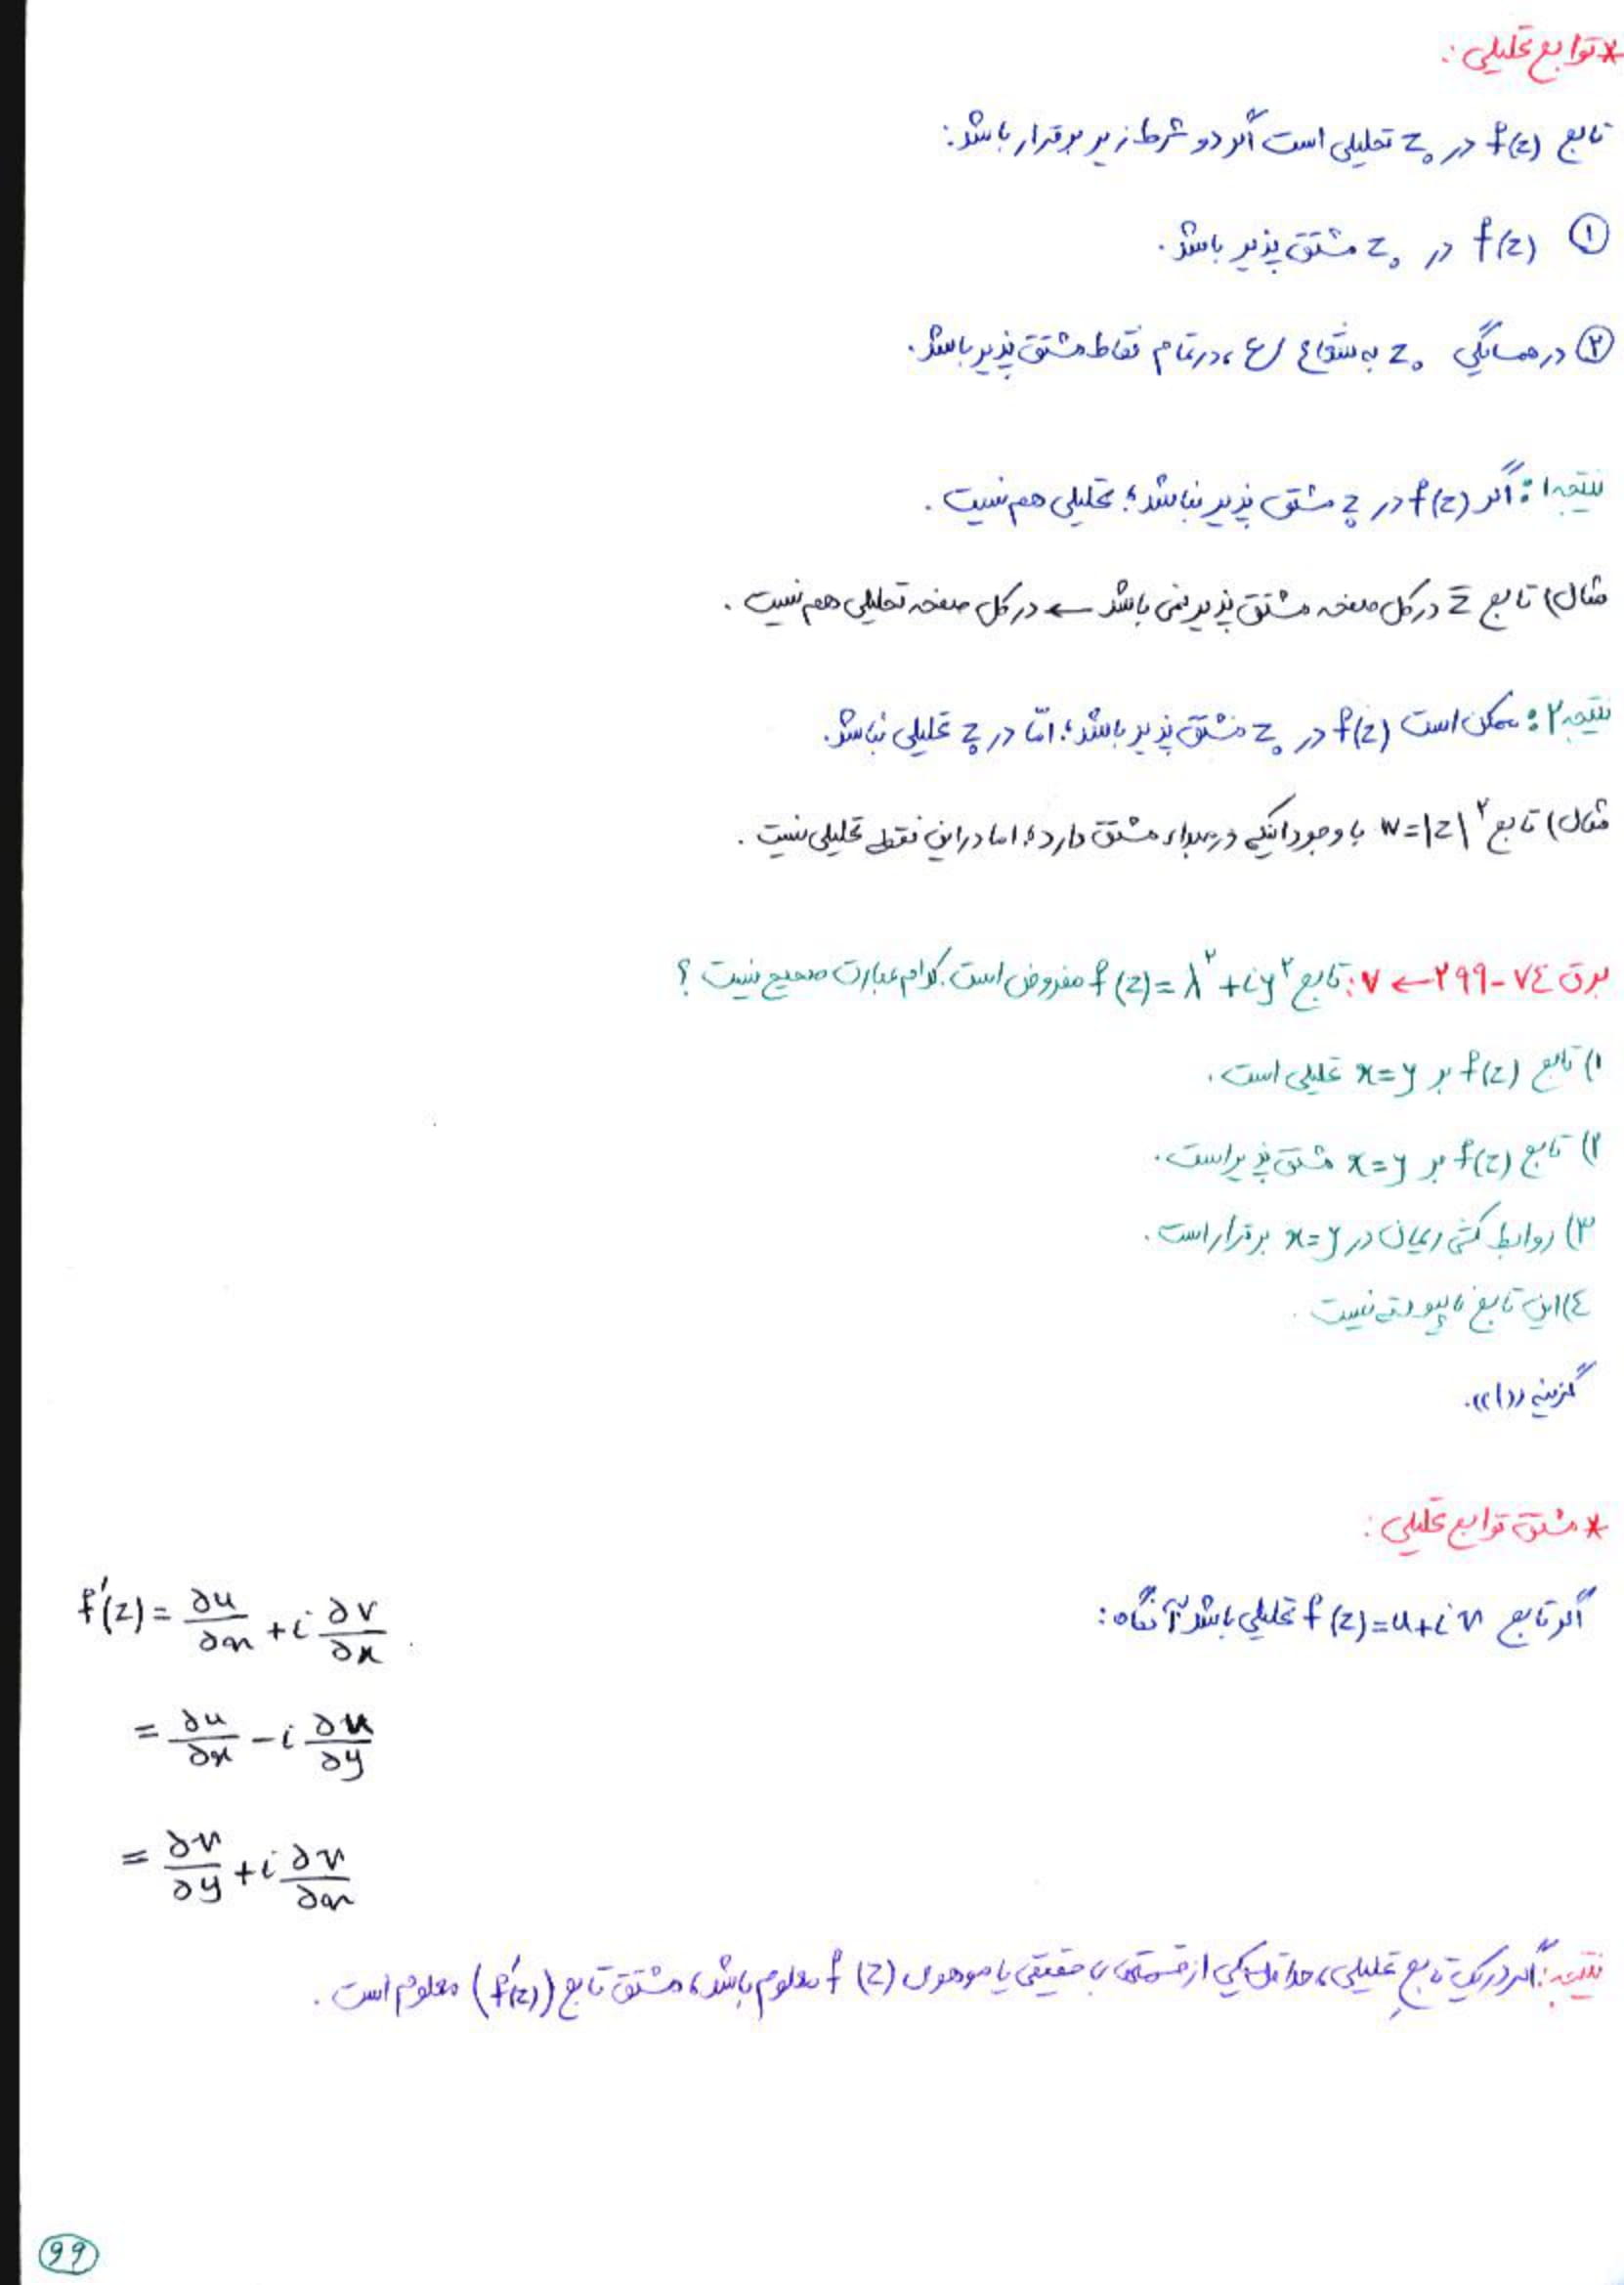 * توابع تحلیلی :
تابع f(z) در z₀ تحلیلی است اگر دو شرط زیر برقرار باشد:
① f(z) در z₀ مشتق پذیر باشد.
② در همسایگی z₀ به شعاع ε، در تمام نقاط مشتق پذیر باشد.
نتیجه۱: اگر f(z) در z₀ مشتق پذیر نباشد؛ تحلیلی هم نیست.
مثال) تابع z̄ در کل صفحه مشتق پذیر نمی باشد ← در کل صفحه تحلیلی هم نیست.
نتیجه۲: ممکن است f(z) در z₀ مشتق پذیر باشد؛ امّا در z₀ تحلیلی نباشد.
مثال) تابع w=|z|² با وجود اینکه در مبداء مشتق دارد؛ اما در این نقطه تحلیلی نیست.
برق ۷٤-۲۹۹ ← ۷: تابع f(z)=x²+iy² مفروض است. کدام عبارت صحیح نیست؟
۱) تابع f(z) بر x=y تحلیلی است.
۲) تابع f(z) بر x=y مشتق پذیر است.
۳) روابط کشی ریمان در x=y برقرار است.
٤) این تابع ناپیوسته نیست.
گزینه «۱».
* مشتق توابع تحلیلی :
اگر تابع f(z)=u+iv تحلیلی باشد آنگاه:
f′(z)= ∂u/∂x + i ∂v/∂x
= ∂u/∂x − i ∂u/∂y
= ∂v/∂y + i ∂v/∂x
نتیجه: اگر در یک تابع تحلیلی، حداقل یکی از قسمتهای حقیقی یا موهومی f(z) معلوم باشد، مشتق تابع (f′(z)) معلوم است.
99